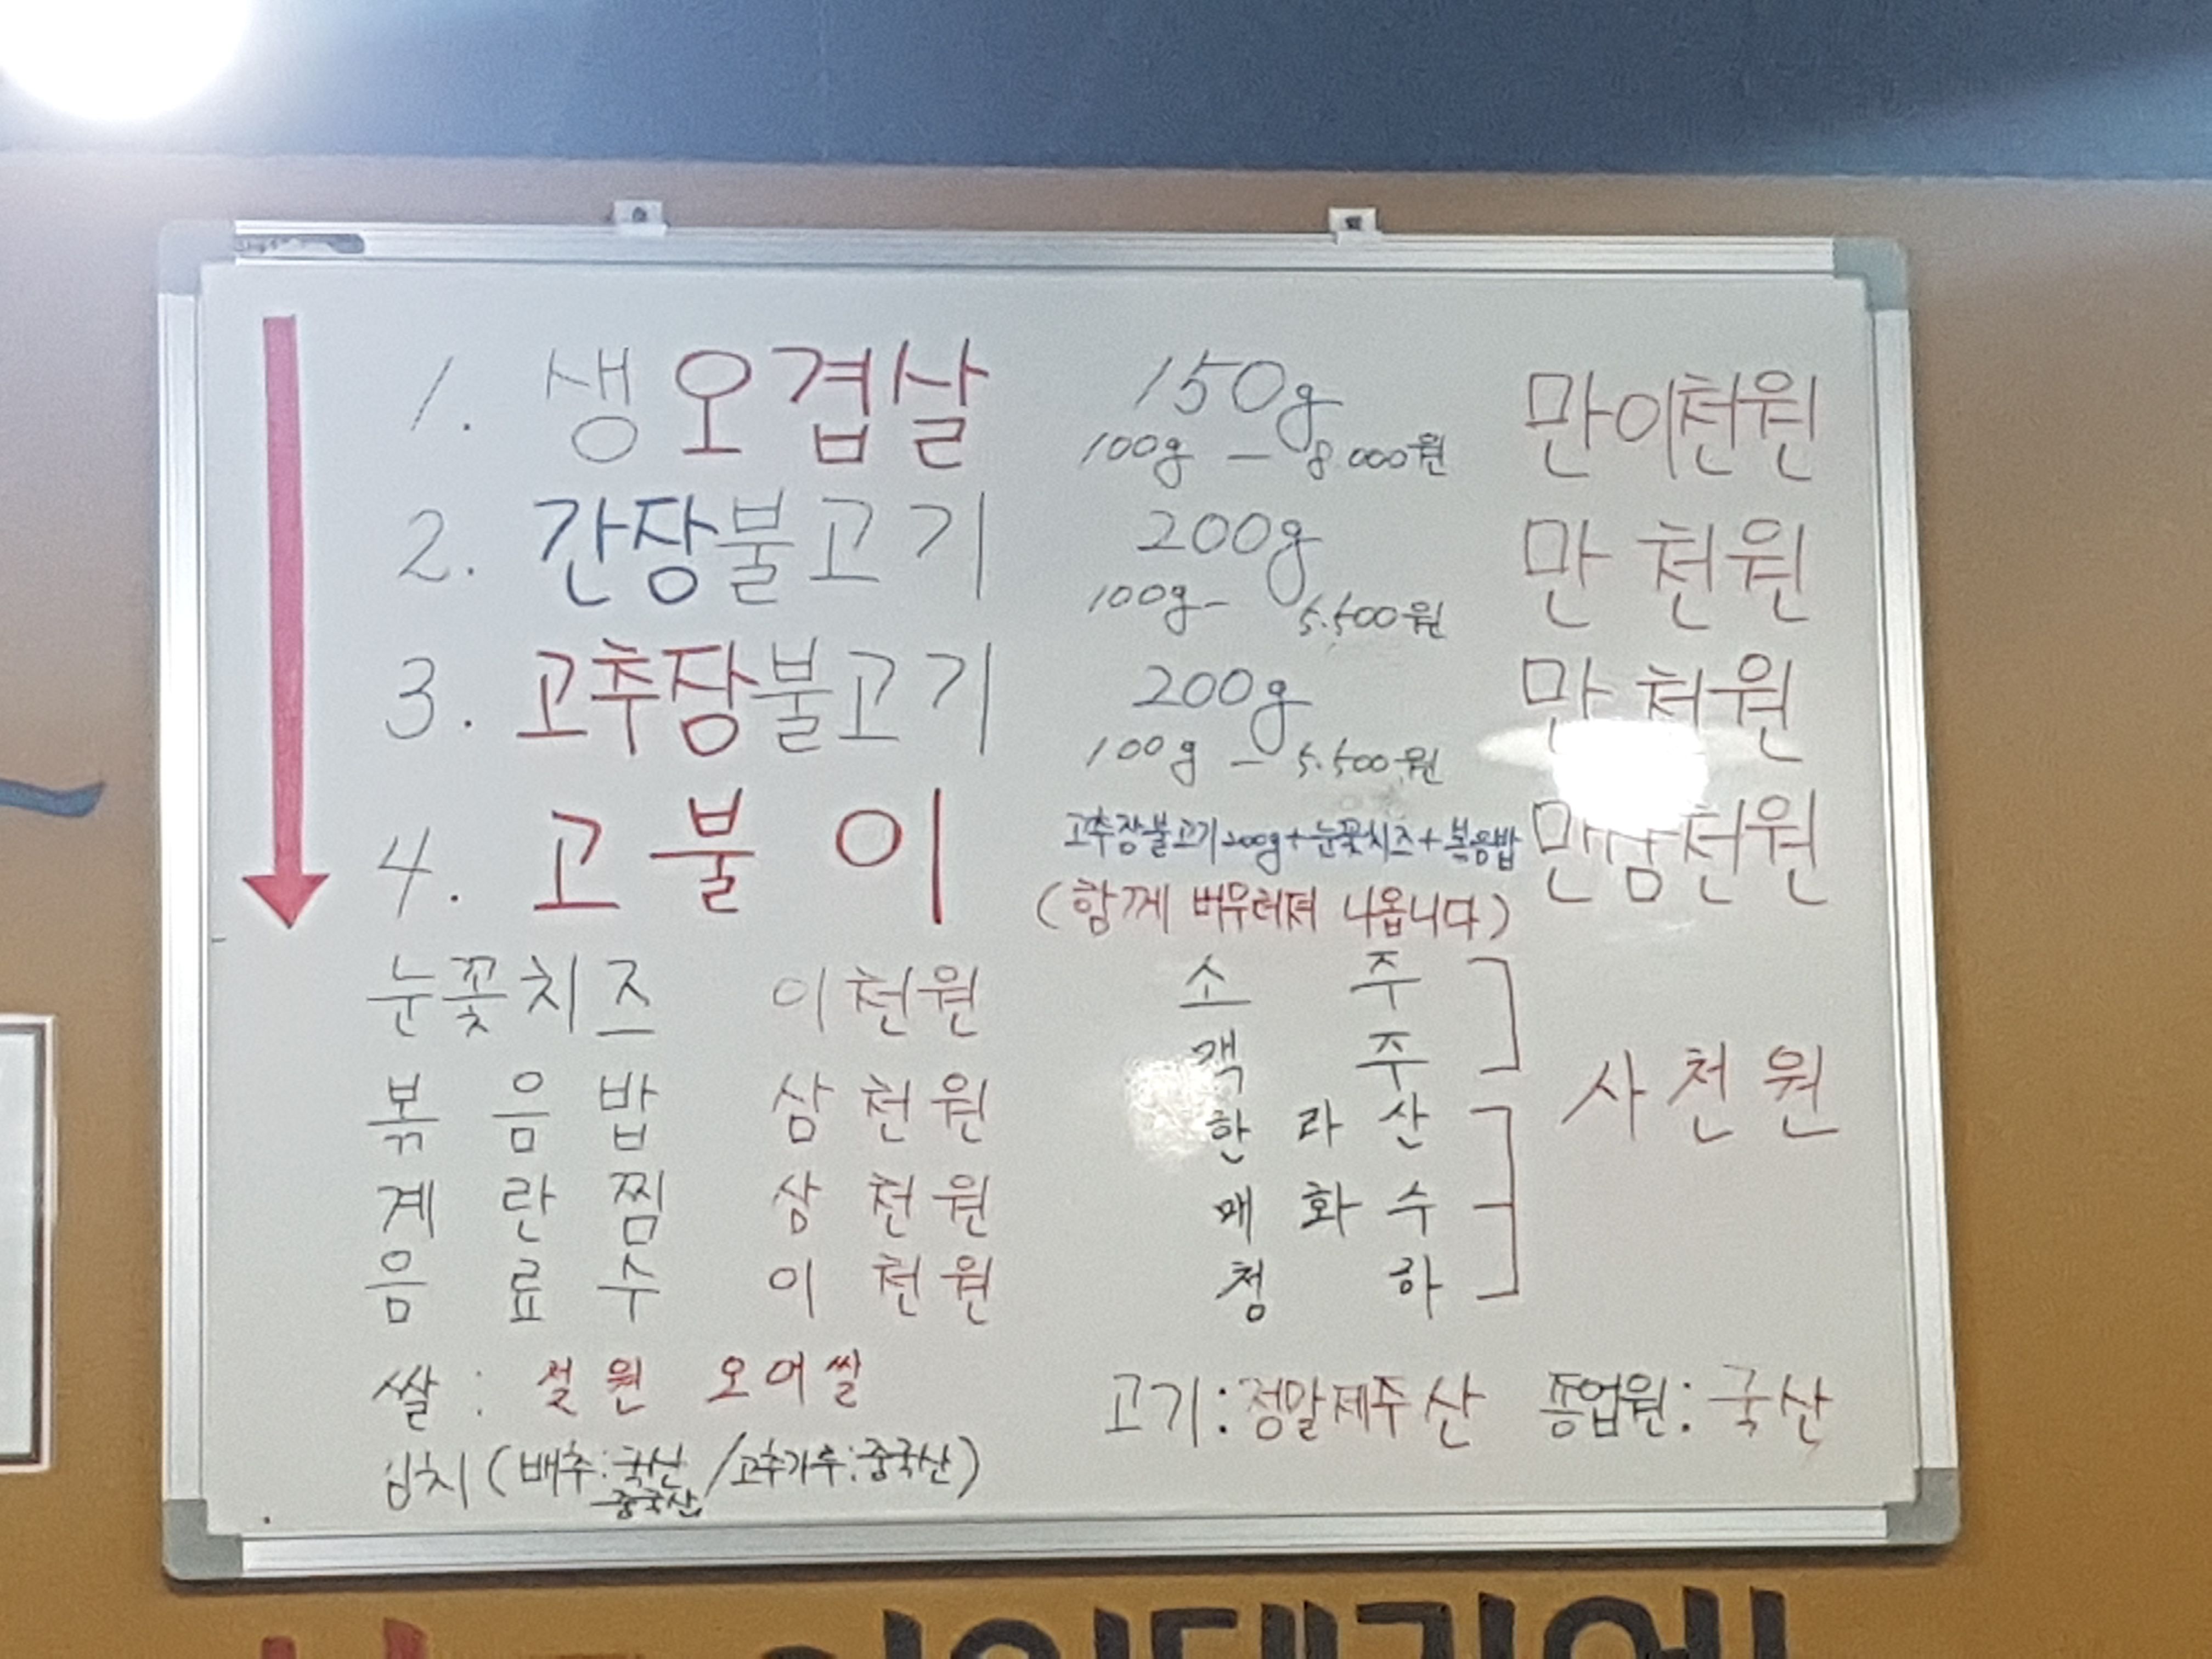 1. 생오겹살 150g 만이천원
100g - 8.000원
2. 간장불고기 200g 만천원
100g- 5.500원
3. 고추장불고기 200g 만천원
100g - 5.500원
4. 고불이 고추장불고기200g+눈꽃치즈+볶음밥 만삼천원
(함께 버무려져 나옵니다)
눈꽃치즈 이천원
볶음밥 삼천원
계란찜 삼천원
음료수 이천원
소주
맥주
한라산
매화수
청하
사천원
쌀: 철원 오대쌀
고기: 정말제주산 종업원: 국산
김치(배추:국산/고추가루:중국산)
중국산